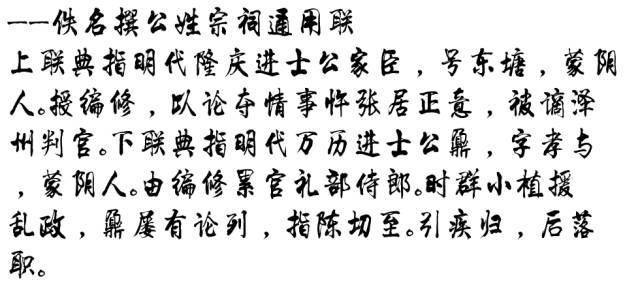 ——佚名撰公姓宗祠通用联
上联典指明代隆庆进士公家臣，号东塘，蒙阴
人。授编修，以论夺情事忤张居正意，被谪泽
州判官。下联典指明代万历进士公鼐，字孝与
，蒙阴人。由编修累官礼部侍郎。时群小植援
乱政，鼐屡有论列，指陈切至。引疾归，后落
职。